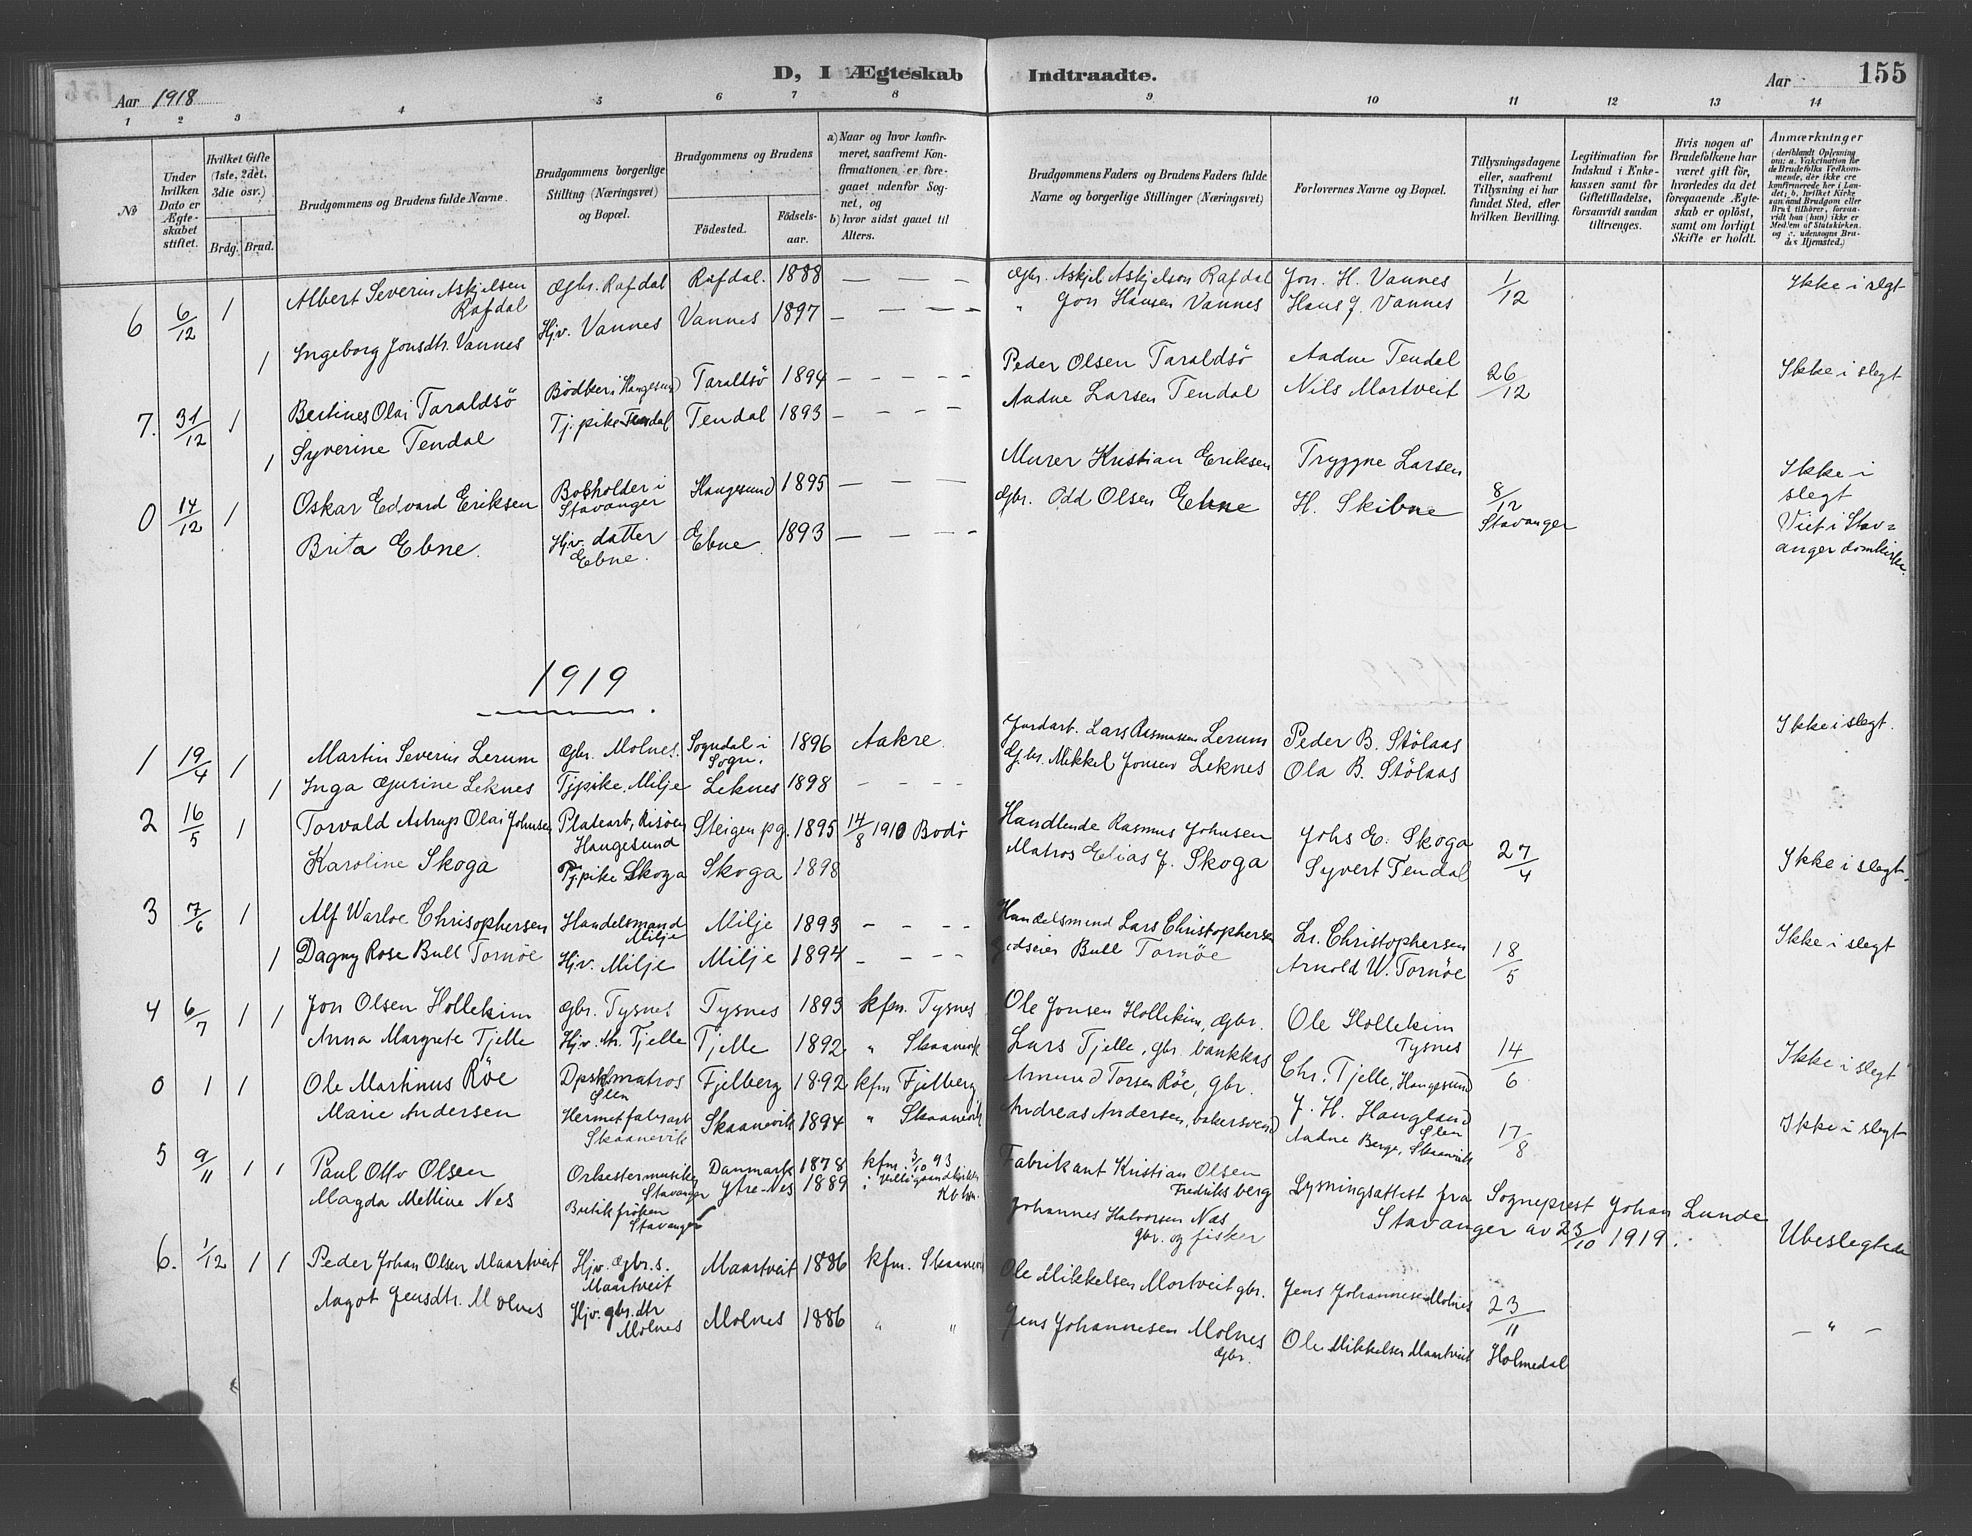 D, I Ægteskab Indtraadte.
Aar 1918
Aar
155
1 2 3 4 5 6 7 8 9 10 11 12 13 14
№
Under hvilken Dato er Ægteskabet stiftet.
Hvilket Gifte (1ste, 2det, 3die osv.)
Brdg. Brud.
Brudgommens og Brudens fulde Navne.
Brudgommens borgerlige Stilling (Næringsvei) og Bopæl.
Brudgommens og Brudens
Fødested.
Fødselsaar.
a) Naar og hvor konfirmeret, saafremt Konfirmationen er foregaaet udenfor Sognet, og
b) hvor sidst gaaet til Alters.
Brudgommens Faders og Brudens Faders fulde Navne og borgerlige Stillinger (Næringsvei)
Forlovernes Navne og Bopæl.
Tillysningsdagene eller, saafremt Tillysning ei har fundet Sted, efter hvilken Bevilling.
Legitimation for Indskud i Enkekassen samt for Giftetilladelse, forsaavidt saadan tiltrænges.
Hvis nogen af Brudefolkene har været gift før, hvorledes da det foregaaende Ægteskab er opløst, samt om lovligt Skifte er holdt.
Anmærkninger
6 6/12 1 Albert Severin Askjelsen Rafdal Gbr. Rafdal Rafdal. 1888 — — — Gbr. Askjel Askjelson Rafdal Jon. H. Vannes 1/12 Ikke i slegt
1 Ingeborg Jonsdtr. Vannes Hjv. Vannes Vannes 1897 — — — — " Jon Hansen Vannes Hans J. Vannes
7. 31/12 1 Bertines Olai Taraldsö Bödker i Haugesund Taraldsö 1894 — — — — Peder Olsen Taraldsö Aadne Tendal 26/12 Ikke i slegt
1 Syverine Tendal Tj. pike Tendal Tendal 1893 — — — — Aadne Larsen Tendal Nils Mortveit
0 14/12 1 Oskar Edvard Eriksen Bokholder i Stavanger Haugesund 1895 — — — — Murer Kristian Eriksen Tryggne Larsen 8/12 Stavanger Ikke i slegt
Brita Ebne. Hjv. datter Ebne. Ebne. 1893 — — — — Gbr. Odd Olsen Ebne H. Skibne Viet i Stavanger domkirke.
1919
1 19/4 1 Martin Severin Lerum Gbr. Molnes. Sogndal i Sogn. 1896 Aakre. Jordarb. Lars Rasmussen Lerum Peder B. Stölaas Ikke i slegt.
1 Inga Gurine Leknes Tjpike. Milje Leknes 1898 — — — — Gbr. Mikkel Jonsen Leknes Ola B. Stölaas
2 16/5 1 Torvald Astrup Olai Johnsen Platearb, Risöen Haugesund Steigen pg. 1895 14/8 1910 Bodö Handlende Rasmus Johnsen Johs E. Skoga 27/4 Ikke i slegt.
Karoline Skoga Tj. pike Skoga Skoga 1898 Matros Elias J. Skoga Syvert Tendal
3 7/6 1 Alf Warloe Chrisophersen Handelsmand Milje Milje 1893 — — — — Handelsmand Lars Christophersen Lr. Christophersen 18/5 Ikke i slegt
1 Dagny Rose Bull Tornöe Hjv. Milje Milje 1894 — — — — Godseier Bull Tornöe Arnold W. Tornöe
4 6/7 1 1 Jon Olsen Hollekim Gbr. Tysnes Tysnes 1893 kfm. Tysnes Ole Jonsen Hollekim, Gbr. Ole Hollekim Tysnes 14/6 Ikke i slegt
Anna Margrete Tjelle Hjv. M. Tjelle Tjelle 1892 " Skaanevik Lars Tjelle, gbr. bankkas Chr. Tjelle, Haugesund
0 1 1 Ole Martinus Röe Dpskmatros Ölen Fjelberg 1892 kfm Fjelberg Amund Torsen Röe, gbr. J. H. Haugland Ölen 17/8 Ikke i slegt
Marie Andersen Hermetfabarb Skaanevik Skaanevik 1894 " Skaanevik Andreas Andersen, bakersvend Aadne Berge, Skaanevik
5 9/11 1 1 Paul Otto Olsen Orkestermusiker Stavanger Danmark 1878 kfm. 3/10 93 Fabrikant Kristian Olsen Fredriksberg Lysningsattest fra Sogneprest Johan Lunde Stavanger av 23/10 1919. Ubeslegtede
Magda Mettine Nes Butikfröken Stavanger Ytre-Nes 1889 Kbhvn. Johannes Halvorsen Nes gbr. og fisker
6. 1/12 1 1 Peder Johan Olsen Maartveit Hjv. Gbr.s. Maartveit Maartveit 1886 kfm. Skaanevik Ole Mikkelsen Mortveit gbr. Jens Johannesen Molnes 23/11 Holmedal
Aagot Jensdtr. Molnes Hjv. gbr. dtr Molnes Molnes 1886 " " Jens Johannesen Molnes Gbr. Ole Mikkelsen Maartveit — " —